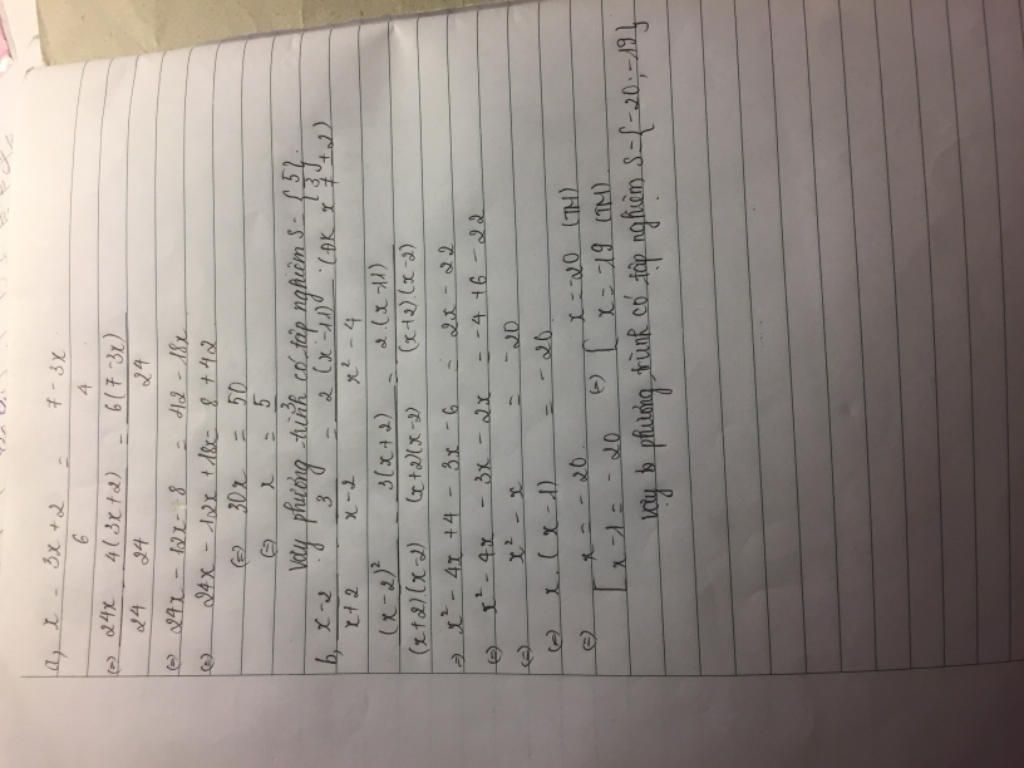 a, x - 3x + 2 / 6 = 7 - 3x / 4
(=) 24x / 24 - 4(3x+2) / 24 = 6(7-3x) / 24
(=) 24x - 12x - 8 = 42 - 18x
(=) 24x - 12x + 18x = 8 + 42
(=) 30x = 50
(=) x = 5 / 3
Vậy phương trình có tập nghiệm S = { 5 / 3 }.
b, x-2 / x+2 - 3 / x-2 = 2(x-11) / x² - 4 (ĐK x ≠ ±2)
(x-2)² / (x+2)(x-2) - 3(x+2) / (x+2)(x-2) = 2(x-11) / (x+2)(x-2)
=) x² - 4x + 4 - 3x - 6 = 2x - 22
(=) x² - 4x - 3x - 2x = -4 + 6 - 22
(=) x² - x = -20
(=) x (x-1) = -20
(=) [ x = -20 (=) [ x = -20 (TM)
x - 1 = -20 x = -19 (TM)
Vậy b phương trình có tập nghiệm S = {-20; -19}